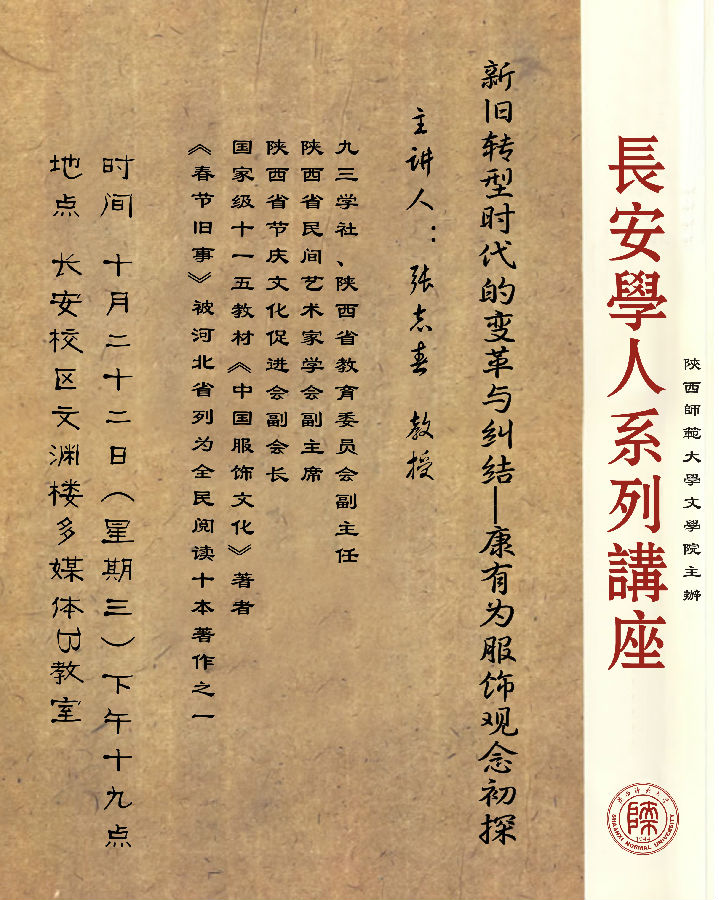 長安學人系列講座
陝西師範大學文學院主辦
新旧转型时代的变革与纠结—康有为服饰观念初探
主讲人：张志春 教授
九三学社、陕西省教育委员会副主任
陕西省民间艺术家学会副主席
陕西省节庆文化促进会副会长
国家级十一五教材《中国服饰文化》著者
《春节旧事》被河北省列为全民阅读十本著作之一
时间 十月二十二日（星期三）下午十九点
地点 长安校区文渊楼多媒体B教室
陕西师范大学
SHAANXI NORMAL UNIVERSITY
1944